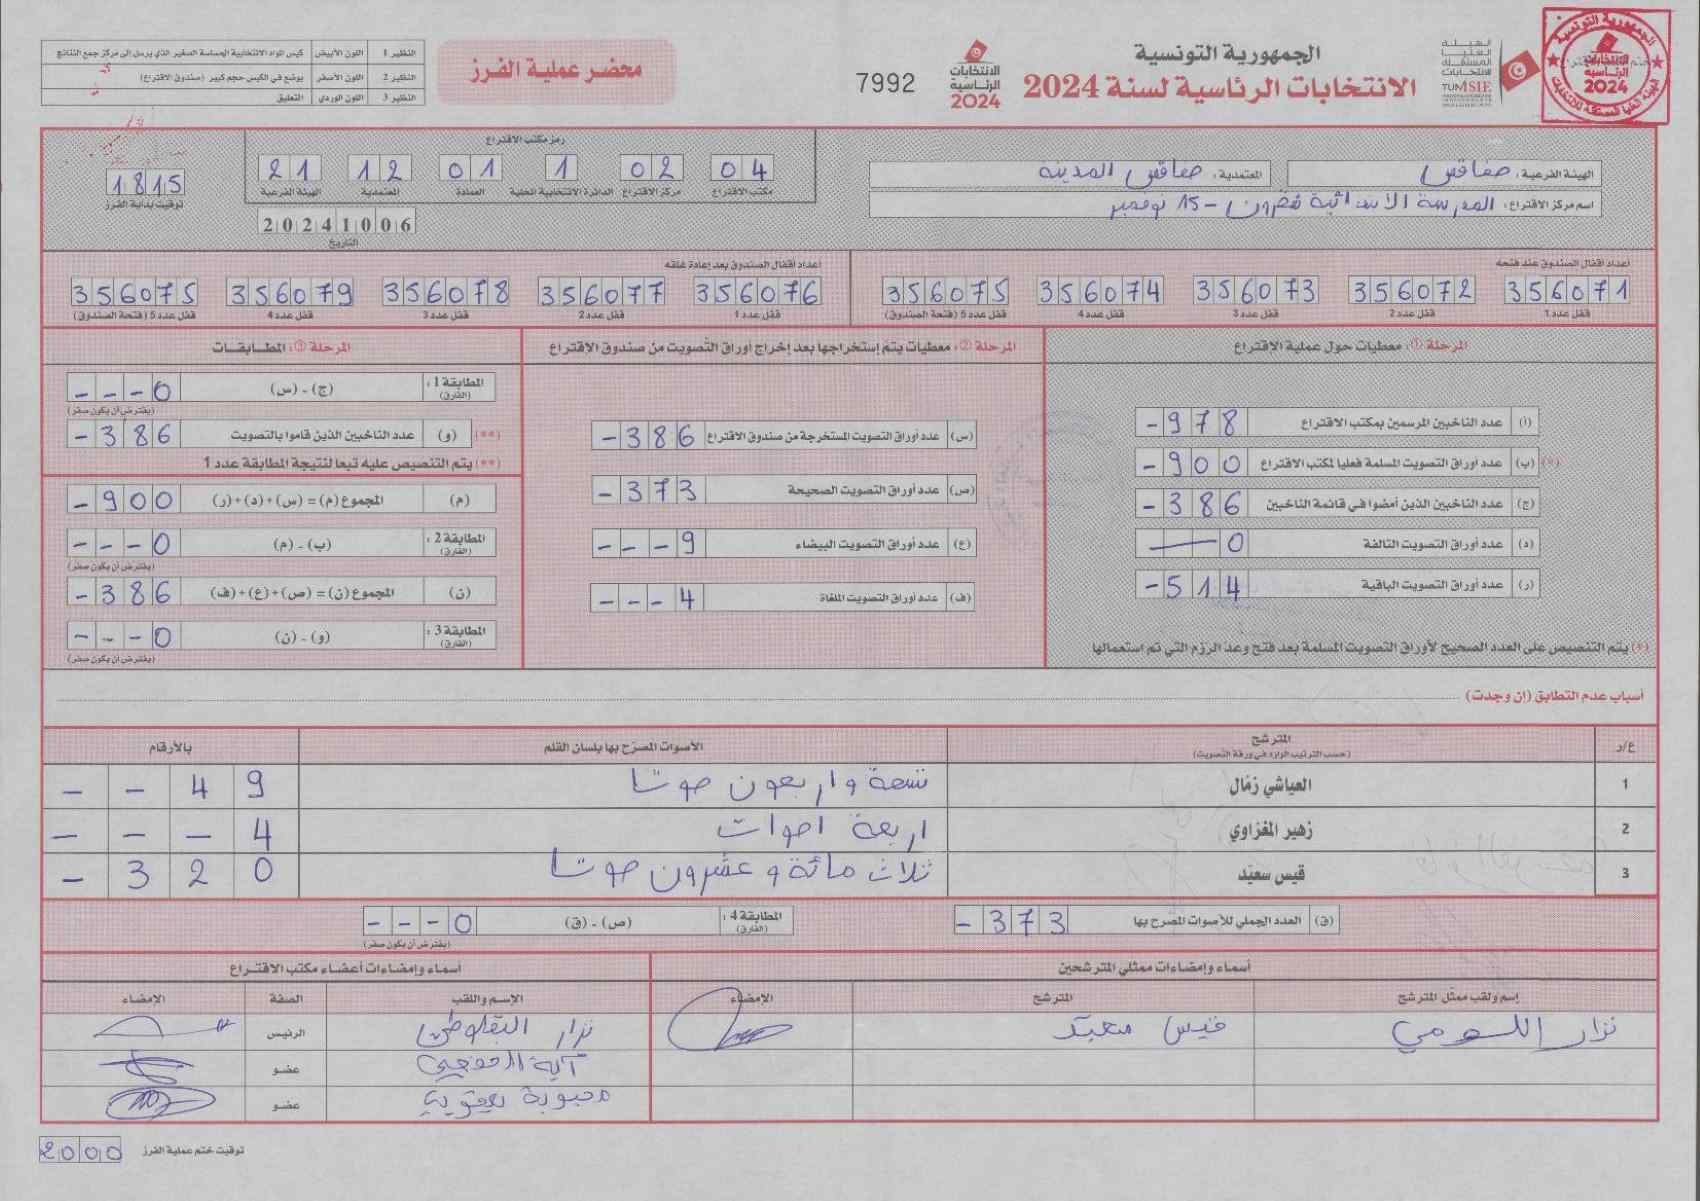 الجمهورية التونسية
الانتخابات الرئاسية لسنة 2024
7992
الانتخابات الرئاسية 2024
الهيئة العليا المستقلة للانتخابات
TUNISIE
محضر عملية الفرز
النظير 1 اللون الأبيض كيس المواد الانتخابية الحساسة الصغير الذي يرسل إلى مركز جمع النتائج
النظير 2 اللون الأصفر يوضع في الكيس حجم كبير (صندوق الاقتراع)
النظير 3 اللون الوردي التعليق
الهيئة الفرعية: صفاقس
المعتمدية: صفاقس المدينة
اسم مركز الاقتراع: المدرسة الابتدائية
15 نوفمبر
رمز مكتب الاقتراع
04 02 1 01 12 21
مكتب الاقتراع مركز الاقتراع الدائرة الانتخابية المحلية العمادة المعتمدية الهيئة الفرعية
20241006
التاريخ
1815
توقيت بداية الفرز
أعداد أقفال الصندوق عند فتحه
356071 356072 356073 356074 356075
قفل عدد 1 قفل عدد 2 قفل عدد 3 قفل عدد 4 قفل عدد 5 (فتحة الصندوق)
أعداد أقفال الصندوق بعد إعادة غلقه
356076 356077 356078 356079 356075
قفل عدد 1 قفل عدد 2 قفل عدد 3 قفل عدد 4 قفل عدد 5 (فتحة الصندوق)
المرحلة ①: معطيات حول عملية الاقتراع
(أ) عدد الناخبين المرسمين بمكتب الاقتراع -978
(*) (ب) عدد أوراق التصويت المسلمة فعليا لمكتب الاقتراع -900
(ج) عدد الناخبين الذين أمضوا في قائمة الناخبين -386
(د) عدد أوراق التصويت التالفة —0
(ر) عدد أوراق التصويت الباقية -514
(*) يتم التنصيص على العدد الصحيح لأوراق التصويت المسلمة بعد فتح وعد الرزم التي تم استعمالها
المرحلة ②: معطيات يتم إستخراجها بعد إخراج أوراق التصويت من صندوق الإقتراع
(س) عدد أوراق التصويت المستخرجة من صندوق الاقتراع -386
(ص) عدد أوراق التصويت الصحيحة -373
(ع) عدد أوراق التصويت البيضاء ---9
(ف) عدد أوراق التصويت الملغاة ---4
المرحلة ③: المطابقات
المطابقة 1: (الفارق) (ج) - (س) ---0
(يفترض أن يكون صفر)
(**) (و) عدد الناخبين الذين قاموا بالتصويت -386
(**) يتم التنصيص عليه تبعا لنتيجة المطابقة عدد 1
(م) المجموع (م) = (س) + (د) + (ر) -900
المطابقة 2: (الفارق) (ب) - (م) ---0
(يفترض أن يكون صفر)
(ن) المجموع (ن) = (ص) + (ع) + (ف) -386
المطابقة 3: (الفارق) (و) - (ن) ---0
(يفترض أن يكون صفر)
أسباب عدم التطابق (إن وجدت)
ع/ر المترشح الأصوات المصرّح بها بلسان القلم بالأرقام
(حسب الترتيب الوارد في ورقة التصويت)
1 العياشي زمّال تسعة واربعون صوتا --49
2 زهير المغزاوي اربعة اصوات ---4
3 قيس سعيّد ثلاث مائة وعشرون صوتا -320
(ق) العدد الجملي للأصوات المصرح بها -373
المطابقة 4: (الفارق) (ص) - (ق) ---0
(يفترض أن يكون صفر)
أسماء وإمضاءات ممثلي المترشحين
إسم ولقب ممثل المترشح المترشح الإمضاء
نزار اللومي قيس سعيّد
أسماء وإمضاءات أعضاء مكتب الاقتراع
الإسم واللقب الصفة الإمضاء
نزار البقلوطي الرئيس
آية عضو
محبوبة عضو
توقيت ختم عملية الفرز 2000